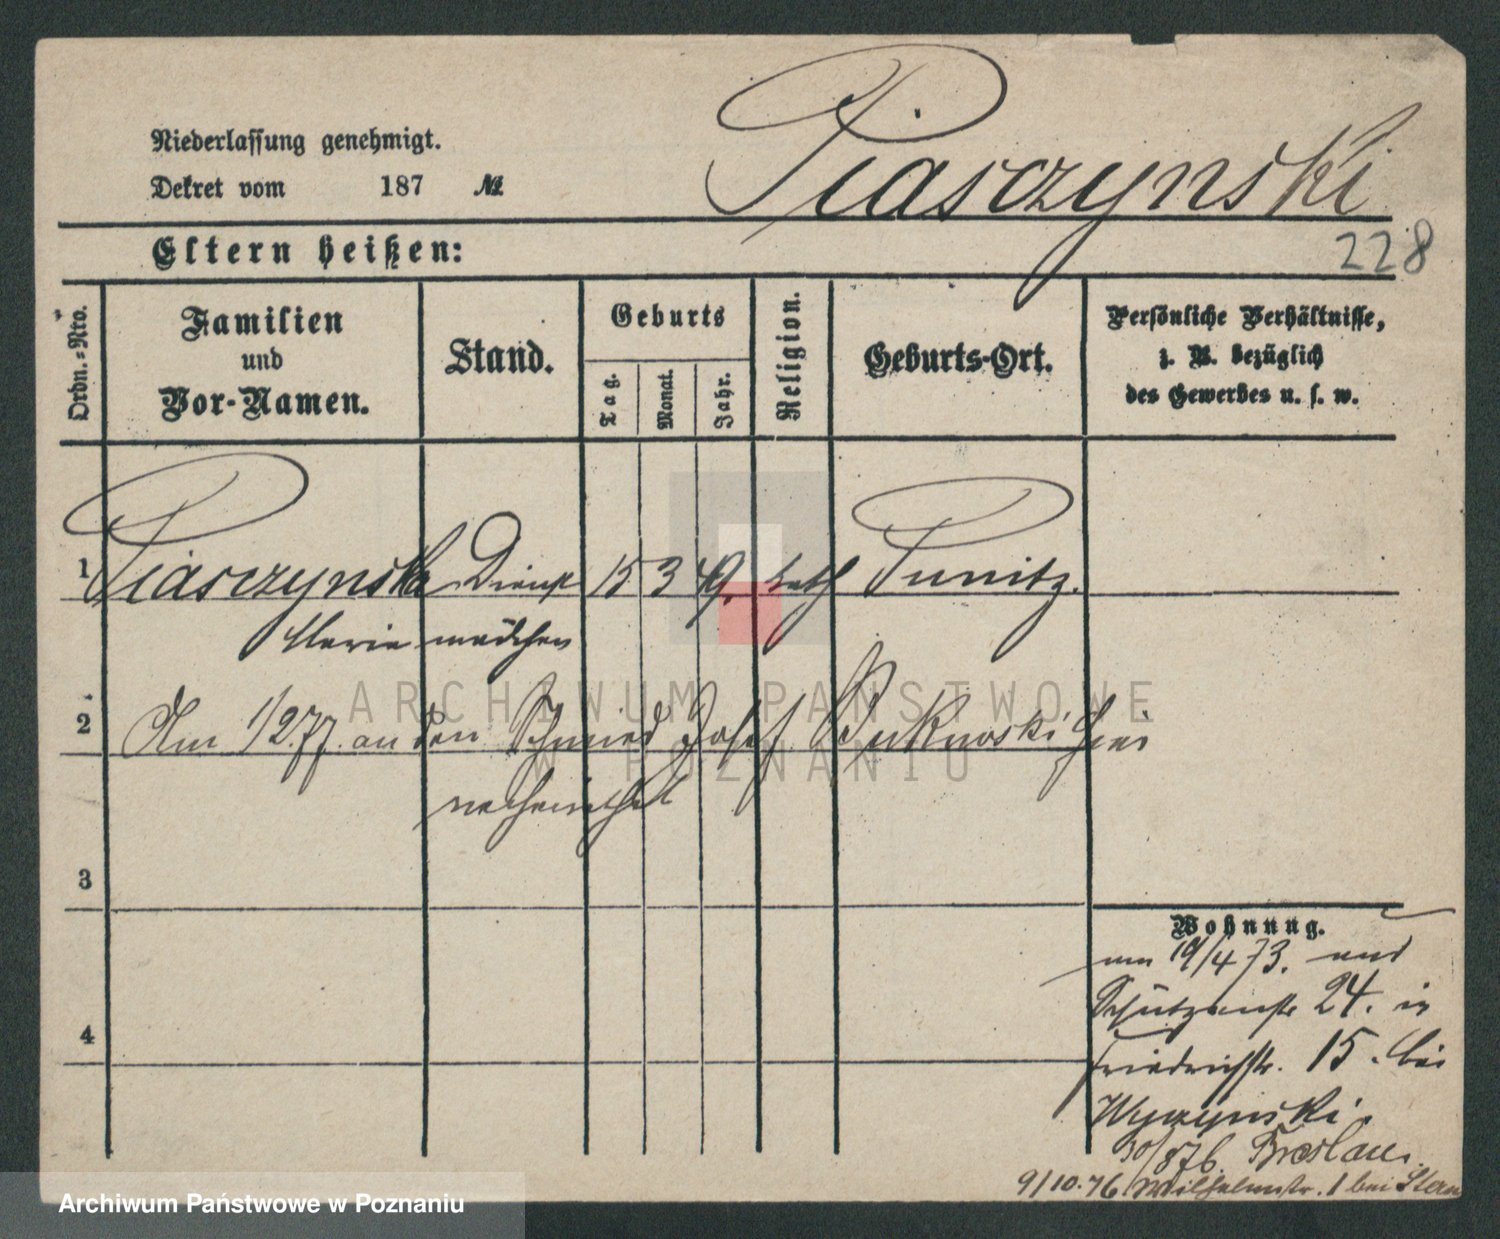 Piasczynski
Niederlassung genehmigt.
Dekret vom 187 №
228
Eltern heißen:
Ordn.=Nro.
Familien
und
Vor-Namen.
Stand.
Geburts
Tag.
Monat.
Jahr.
Religion.
Geburts-Ort.
Persönliche Verhältnisse,
z. B. bezüglich
des Gewerbes u. s. w.
1 Piasczynska Dienst 15 3 49. kath Punitz.
Marie mädchen
2 Am 1/2.77. an den Schmied Josef hier
verheirathet
3
4
Wohnung.
am 19/4 73. aus
Schützenstr 24. in
Friedrichstr. 15. bei
Wyczynski.
30/876. Breslau.
9/10.76 Wilhelmstr. 1 bei Stern
ARCHIWUM PAŃSTWOWE
W POZNANIU
Archiwum Państwowe w Poznaniu